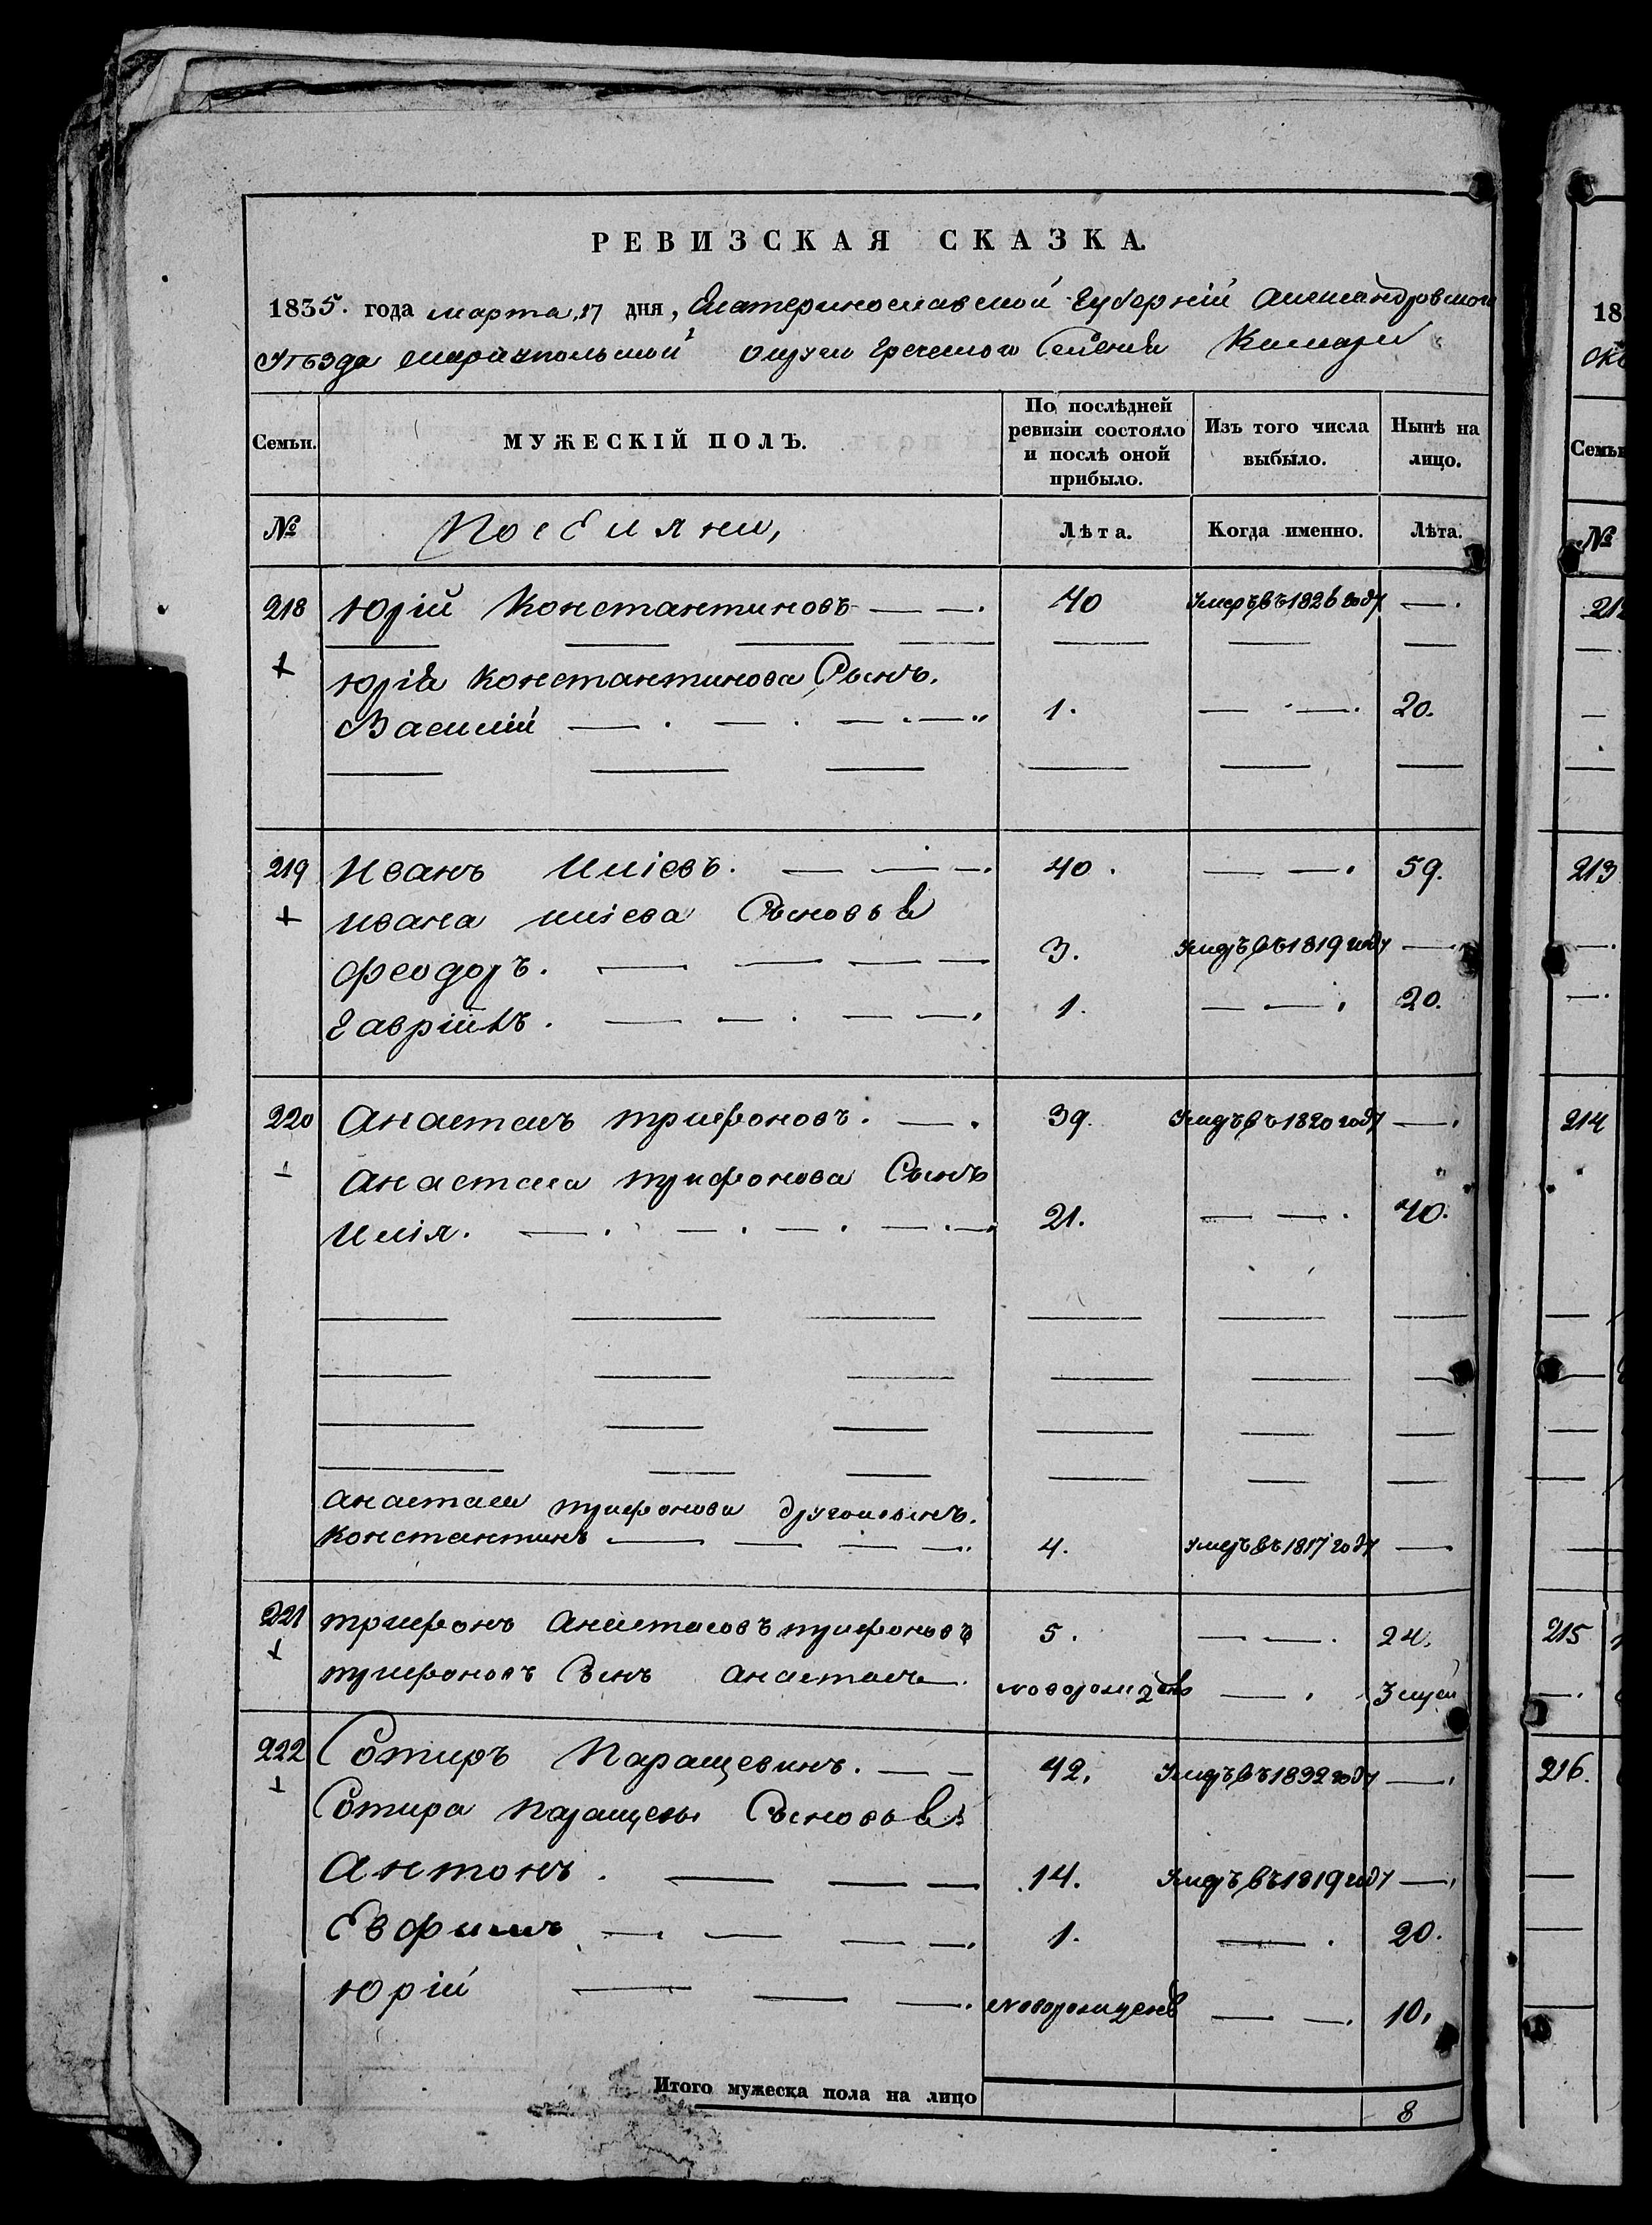 РЕВИЗСКАЯ СКАЗКА.
1835. года марта 17 дня, Екатеринославской Губерніи Александровскаго
Уѣзда Маріупольской округи Греческого Селенія Камары
Семьи. МУЖЕСКІЙ ПОЛЪ. По послѣдней ревизіи состояло и послѣ оной прибыло. Изъ того числа выбыло. Нынѣ на лицо.
№ Поселяни, Лѣта. Когда именно. Лѣта.
218 Юрій Константиновъ — —. 40 Умеръ въ 1826 году —.
Юрія Константинова Сынъ.
Василій — . — . — . — 1. — . —. 20.
219 Иванъ Иліевъ. — — —. 40. — —. 59.
Ивана Иліева Сыновья
Феодоръ. — — — — 3. Умеръ въ 1819 году —.
Гавріилъ. — — . — —. 1. — — . 20.
220 Анастасъ Трифоновъ. — . 39. Умеръ въ 1820 году —.
Анастаса Трифонова Сынъ
Илія. — . — . — . — . — 21. — — . 40.
Анастаса Трифонова другой сынъ.
Константинъ — — — —. 4. Умеръ въ 1817 году —
221 Трифонъ Анастасовъ Трифоновъ 5. — — . 24.
Трифоновъ Сынъ Анастасъ — новорожденъ — . 3 мѣся
222 Сотиръ Паращевинъ. — — 42. Умеръ въ 1832 году —.
Сотира Паращевы Сыновья
Антонъ. — — — 14. Умеръ въ 1819 году —.
Евфимъ — . — — —. 1. — . 20.
Юрій — — —. новорожденъ — —. 10.
Итого мужеска пола на лицо 8
18
Семьи
№
212
213
214
215
216.